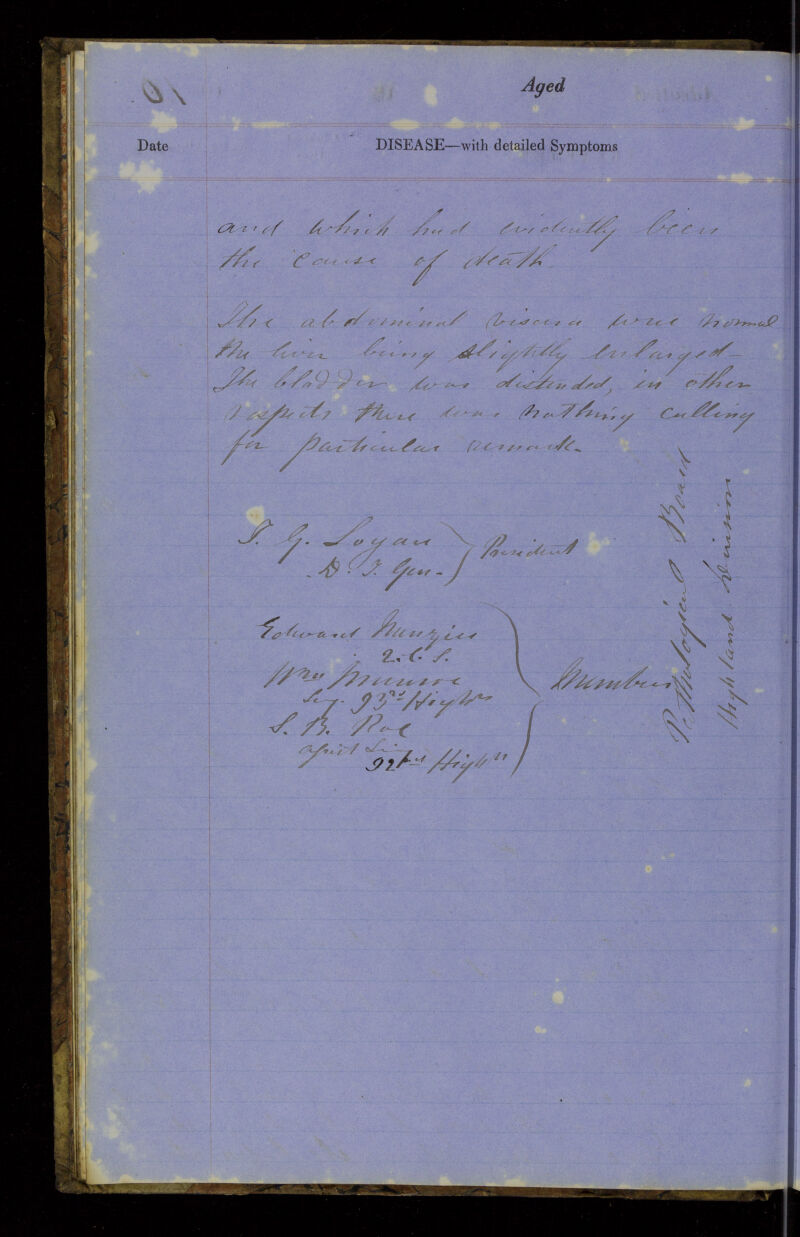 Aged
Date
DISEASE—with detailed Symptoms
and which had evidently been
the cause of death.
The abdominal viscera were normal
the liver being slightly enlarged—
The bladder was distended, in other
respects there was nothing calling
for particular remark.
T. G. Logan
D. I. Gen.
President
Edward Menzies
Wm Munroe
Surg. 93rd Highrs
S. B. Roe
Assist Sur
92nd Highrs
Members
Pathological Board
Highland Division